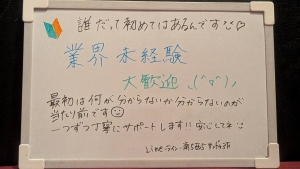 誰だって初めてはあるんです
業界未経験
大歓迎
最初は何が分からないか分からないのが
当たり前です
一つずつ丁寧にサポートします!!安心してネ